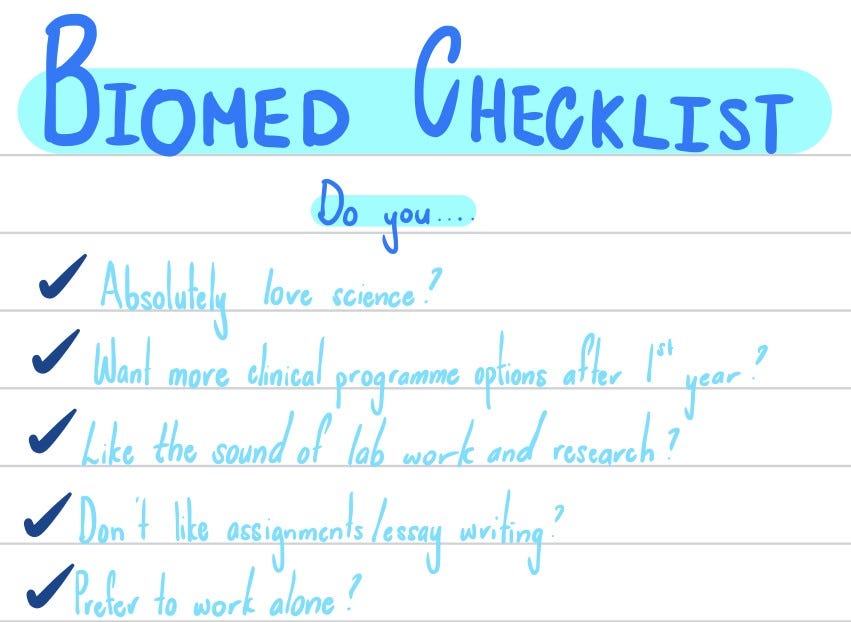 BIOMED CHECKLIST
Do you....
Absolutely love science?
Want more clinical programme options after 1st year?
Like the sound of lab work and research?
Don't like assignments/essay writing?
Prefer to work alone?